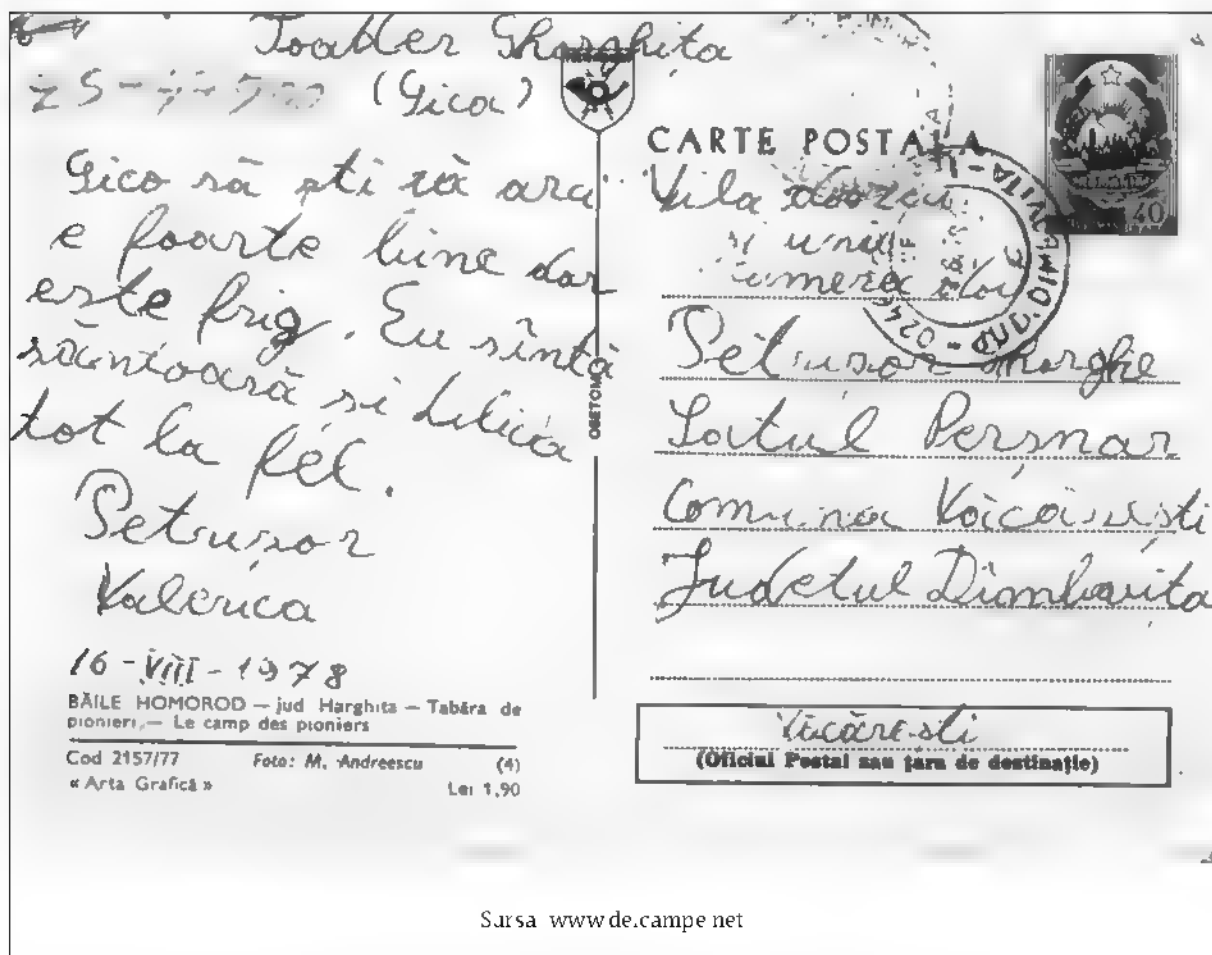 Toader Ghorghița
(Gica)
Gico să ști că aici
e foarte bine dar
este frig. Eu sîntă
sănioară si Lilicia
tot la fel.
Petrușor
Valerica
16-VIII-1978
BĂILE HOMOROD — jud Harghita — Tabăra de
pionieri — Le camp des pionniers
Cod 2157/77 Foto: M. Andreescu (4)
« Arta Grafică » Lei 1,90
CARTE POSTALA
40
Vila
și unu
Petrușor Ghorghe
Satul Perșinar
Comuna Văcărești
Județul Dîmbovița
Văcărești
(Oficiul Postal sau țara de destinație)
Sursa www.delcampe.net